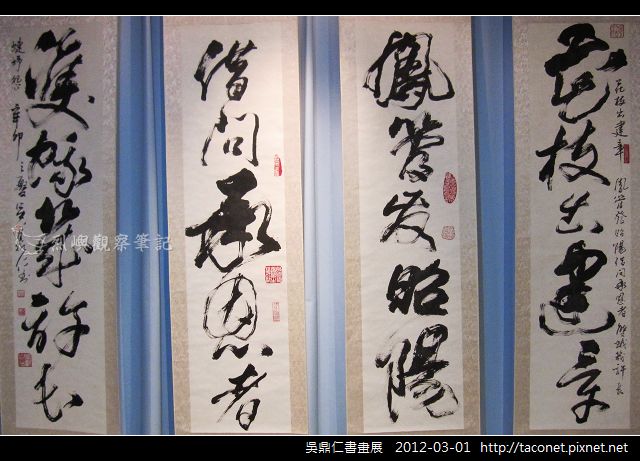 花枝出建章
花枝出建章 鳳管發昭陽 借問承恩者 雙蛾幾許長
鳳管发昭陽
借問承恩者
雙蛾幾許長
婕妤怨 辛卯
烈嶼觀察筆記
吳鼎仁書畫展 2012-03-01 http://taconet.pixnet.net